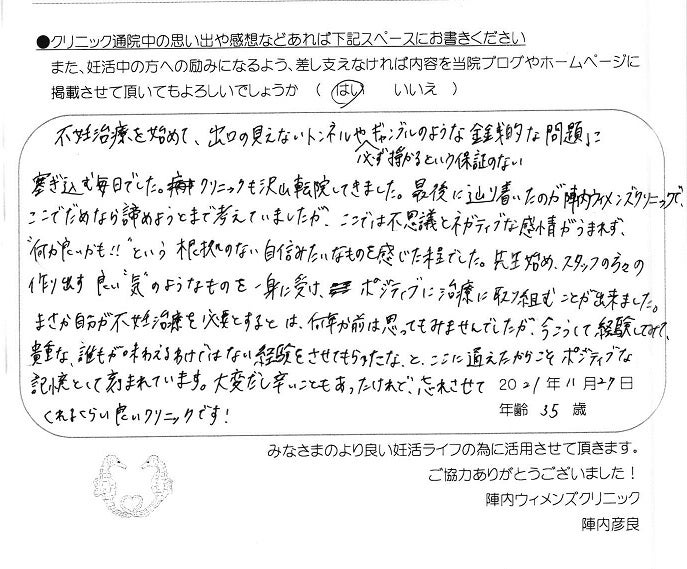 ●クリニック通院中の思い出や感想などあれば下記スペースにお書きください
また、妊活中の方への励みになるよう、差し支えなければ内容を当院ブログやホームページに
掲載させて頂いてもよろしいでしょうか （ はい いいえ ）
不妊治療を始めて、出口の見えないトンネルやギャンブルのような金銭的な問題に
必ず授かるという保証のない
塞ぎ込む毎日でした。クリニックも沢山転院してきました。最後に辿り着いたのが陣内ウィメンズクリニックで、
ここでだめなら諦めようとまで考えていましたが、ここでは不思議とネガティブな感情がうまれず、
"何か良いかも!!"という根拠のない自信みたいなものを感じた程でした。先生始め、スタッフの方々の
作り出す良い"気"のようなものを一身に受け、ポジティブに治療に取り組むことが出来ました。
まさか自分が不妊治療を必要とするとは、何年か前は思ってもみませんでしたが、今こうして経験してみて、
貴重な、誰もが味わえるわけではない経験をさせてもらったな、と、ここに通えたからこそポジティブな
記憶として刻まれています。大変だし辛いこともあったけれど、忘れさせて
くれるくらい良いクリニックです!
2021年11月27日
年齢 35 歳
みなさまのより良い妊活ライフの為に活用させて頂きます。
ご協力ありがとうございました！
陣内ウィメンズクリニック
陣内彦良